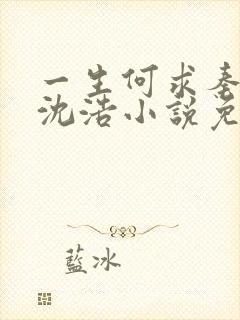 一生何求秦
沈浩小說免
藍冰